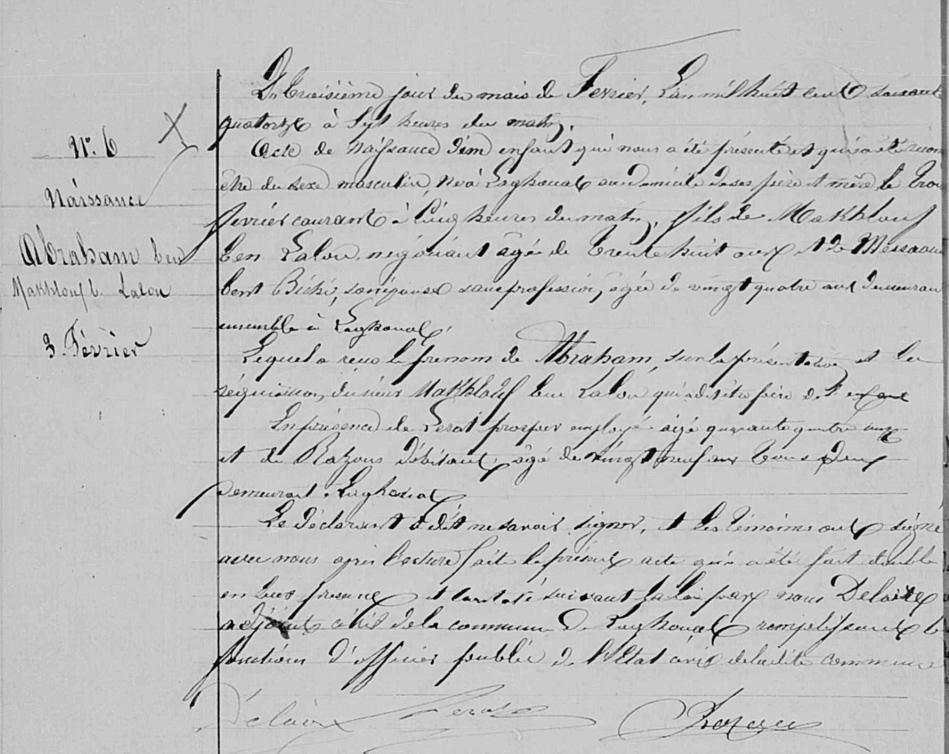 N.º 6
Naissance
Abraham ben
Makhlouf b. Lalou
3. Février
Du troisième jour du mois de Fevrier, L'an mil huit cent soixante
quatorze à Sept heures du matin.
Acte de Naissance d'un enfant qui nous a été présenté et qui a été reconn
être du sexe masculin, Né à Laghouat au domicile de ses père et mère le trois
fevrier courant à Cinq heures du matin, fils de Makhlouf
ben Lalou, négociant âgé de trente huit ans et de Messaouda
bent son épouse sans profession, âgée de vingt quatre ans demeurant
ensemble à Laghouat.
Lequel a reçu le prénom de Abraham, sur la présentation et la
réquisition du sieur Makhlouf ben Lalou qui a dit être père de l'enfant
En présence de prosper employé âgé quarante quatre ans
et de Razous débitant, âgé de vingt neuf ans tous deux
demeurant à Laghouat
Le Déclarant a dit ne savoir signer, et les témoins ont signé
avec nous après lecture faite le présent acte qui a été fait double
en leur présence et constaté suivant la loi par nous Delaire
adjoint civil de la commune de Laghouat remplissant les
fonctions d'officier public de l'Etat civil de ladite commune
Delaire